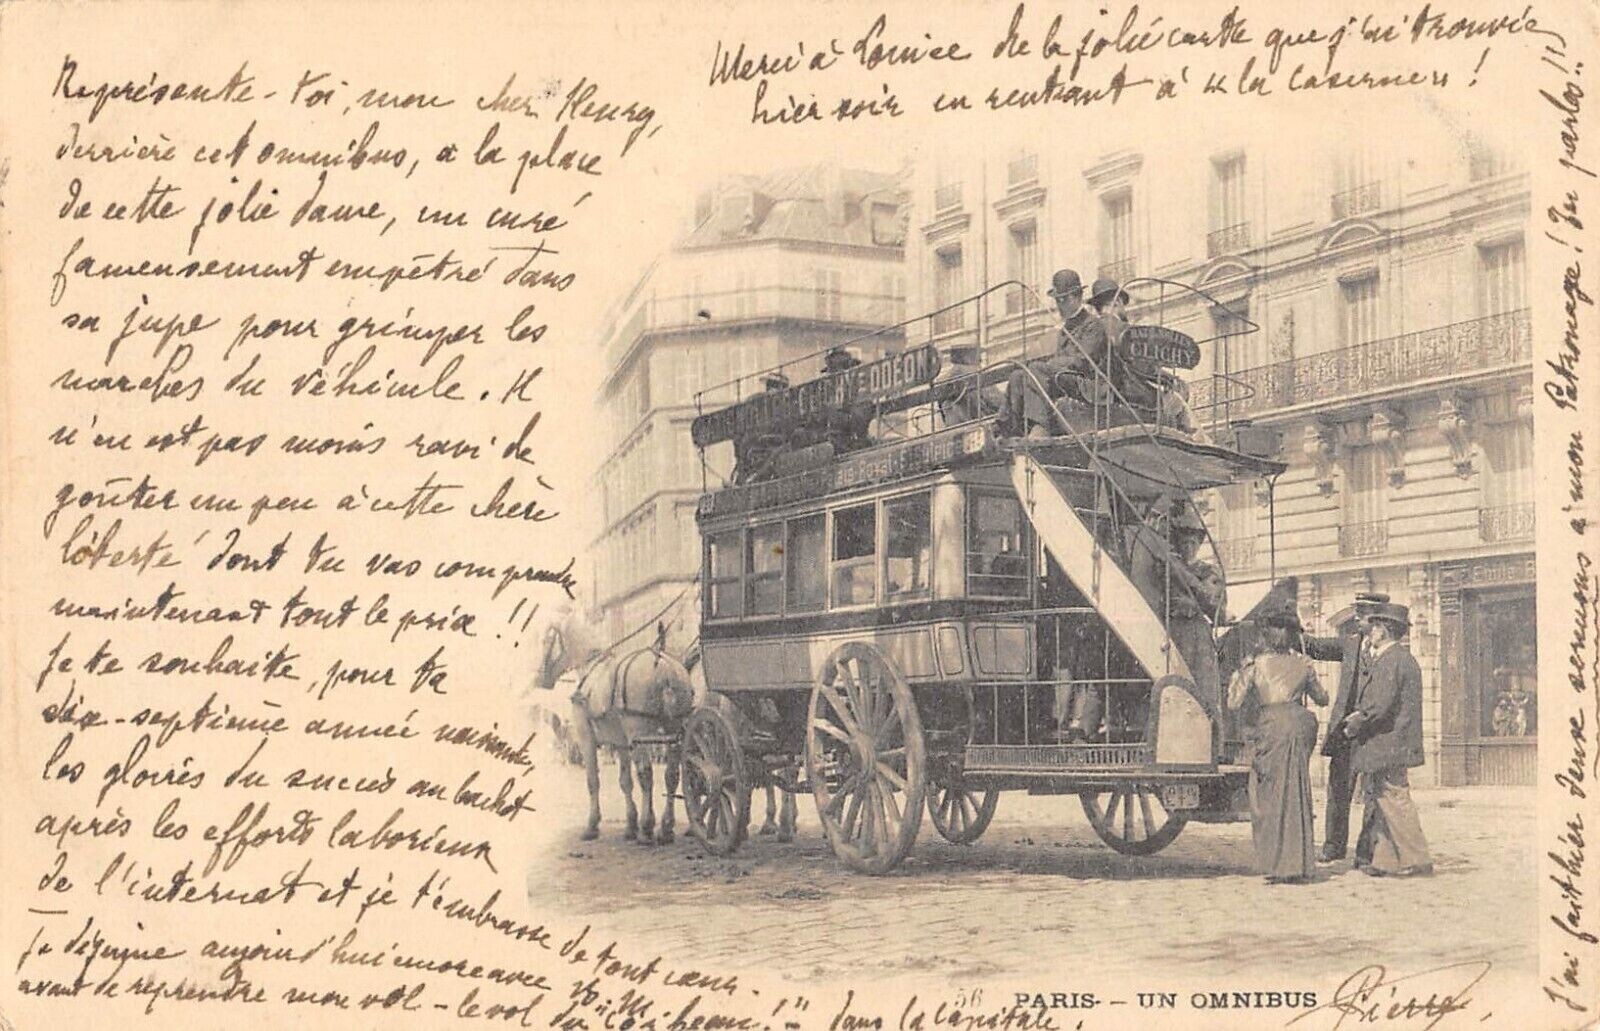 Représente-toi, mon cher Henry,
derrière cet omnibus, à la place
de cette jolie dame, un curé
fameusement empêtré dans
sa jupe pour grimper les
marches du véhicule. Il
n'en est pas moins ravi de
goûter un peu à cette chère
liberté dont tu vas comprendre
maintenant tout le prix !!
Je te souhaite, pour ta
dix-septième année naissante,
les gloires du succès au bachot
après les efforts laborieux
de l'internat et je t'embrasse de tout cœur.
Je déjeune aujourd'hui encore avec M
avant de reprendre mon vol - le vol du " " dans la Capitale.
Pierre
Merci à Louise de la jolie carte que j'ai trouvée
hier soir en rentrant à « la caserne » !
J'ai fait hier deux sermons à mon Patronage ! Tu parlas !!
CLICHY ODÉON
CLICHY
56 PARIS - UN OMNIBUS